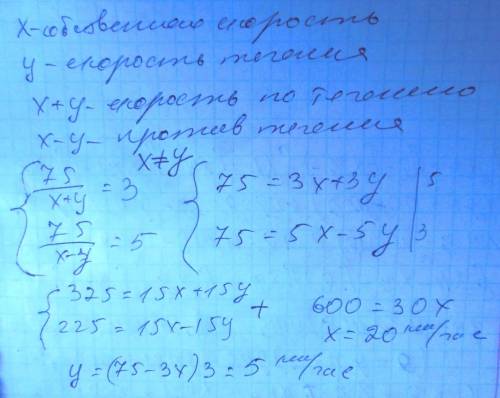 x-собственная скорость
y-скорость течения
x+y- скорость по течению
x-y- против течения
x≠y
75/(x+y) = 3
75/(x-y) = 5
75 = 3x+3y | 5
75 = 5x-5y | 3
325=15x+15y
225=15x-15y
+
600=30x
x=20 км/час
y=(75-3x)3=5 км/час